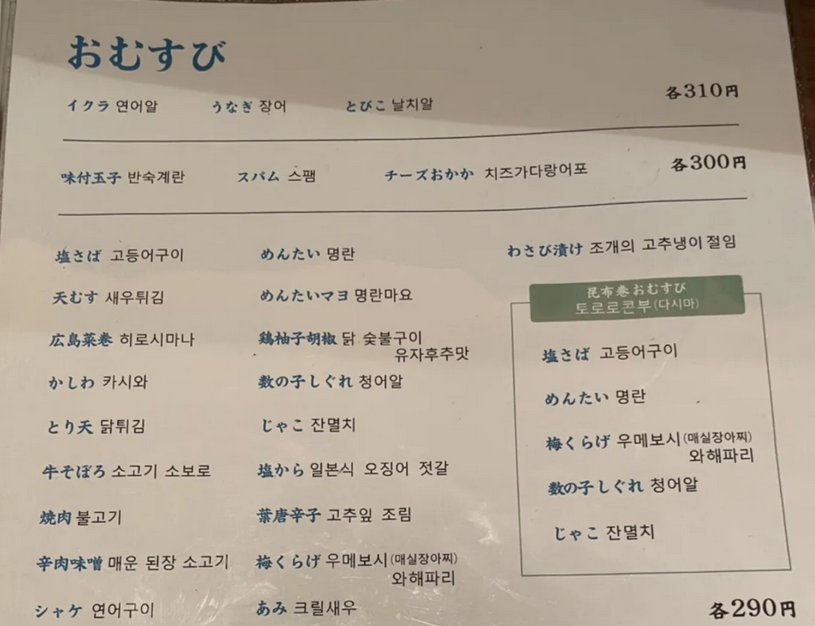 おむすび
イクラ 연어알 うなぎ 장어 とびこ 날치알 各310円
味付玉子 반숙계란 スパム 스팸 チーズおかか 치즈가다랑어포 各300円
塩さば 고등어구이 めんたい 명란 わさび漬け 조개의 고추냉이 절임
天むす 새우튀김 めんたいマヨ 명란마요
広島菜巻 히로시마나 鶏柚子胡椒 닭 숯불구이
유자후추맛
かしわ 카시와 数の子しぐれ 청어알
とり天 닭튀김 じゃこ 잔멸치
牛そぼろ 소고기 소보로 塩から 일본식 오징어 젓갈
焼肉 불고기 葉唐辛子 고추잎 조림
辛肉味噌 매운 된장 소고기 梅くらげ 우메보시(매실장아찌)
와해파리
シャケ 연어구이 あみ 크릴새우
昆布巻おむすび
토로로콘부(다시마)
塩さば 고등어구이
めんたい 명란
梅くらげ 우메보시(매실장아찌)
와해파리
数の子しぐれ 청어알
じゃこ 잔멸치
各290円